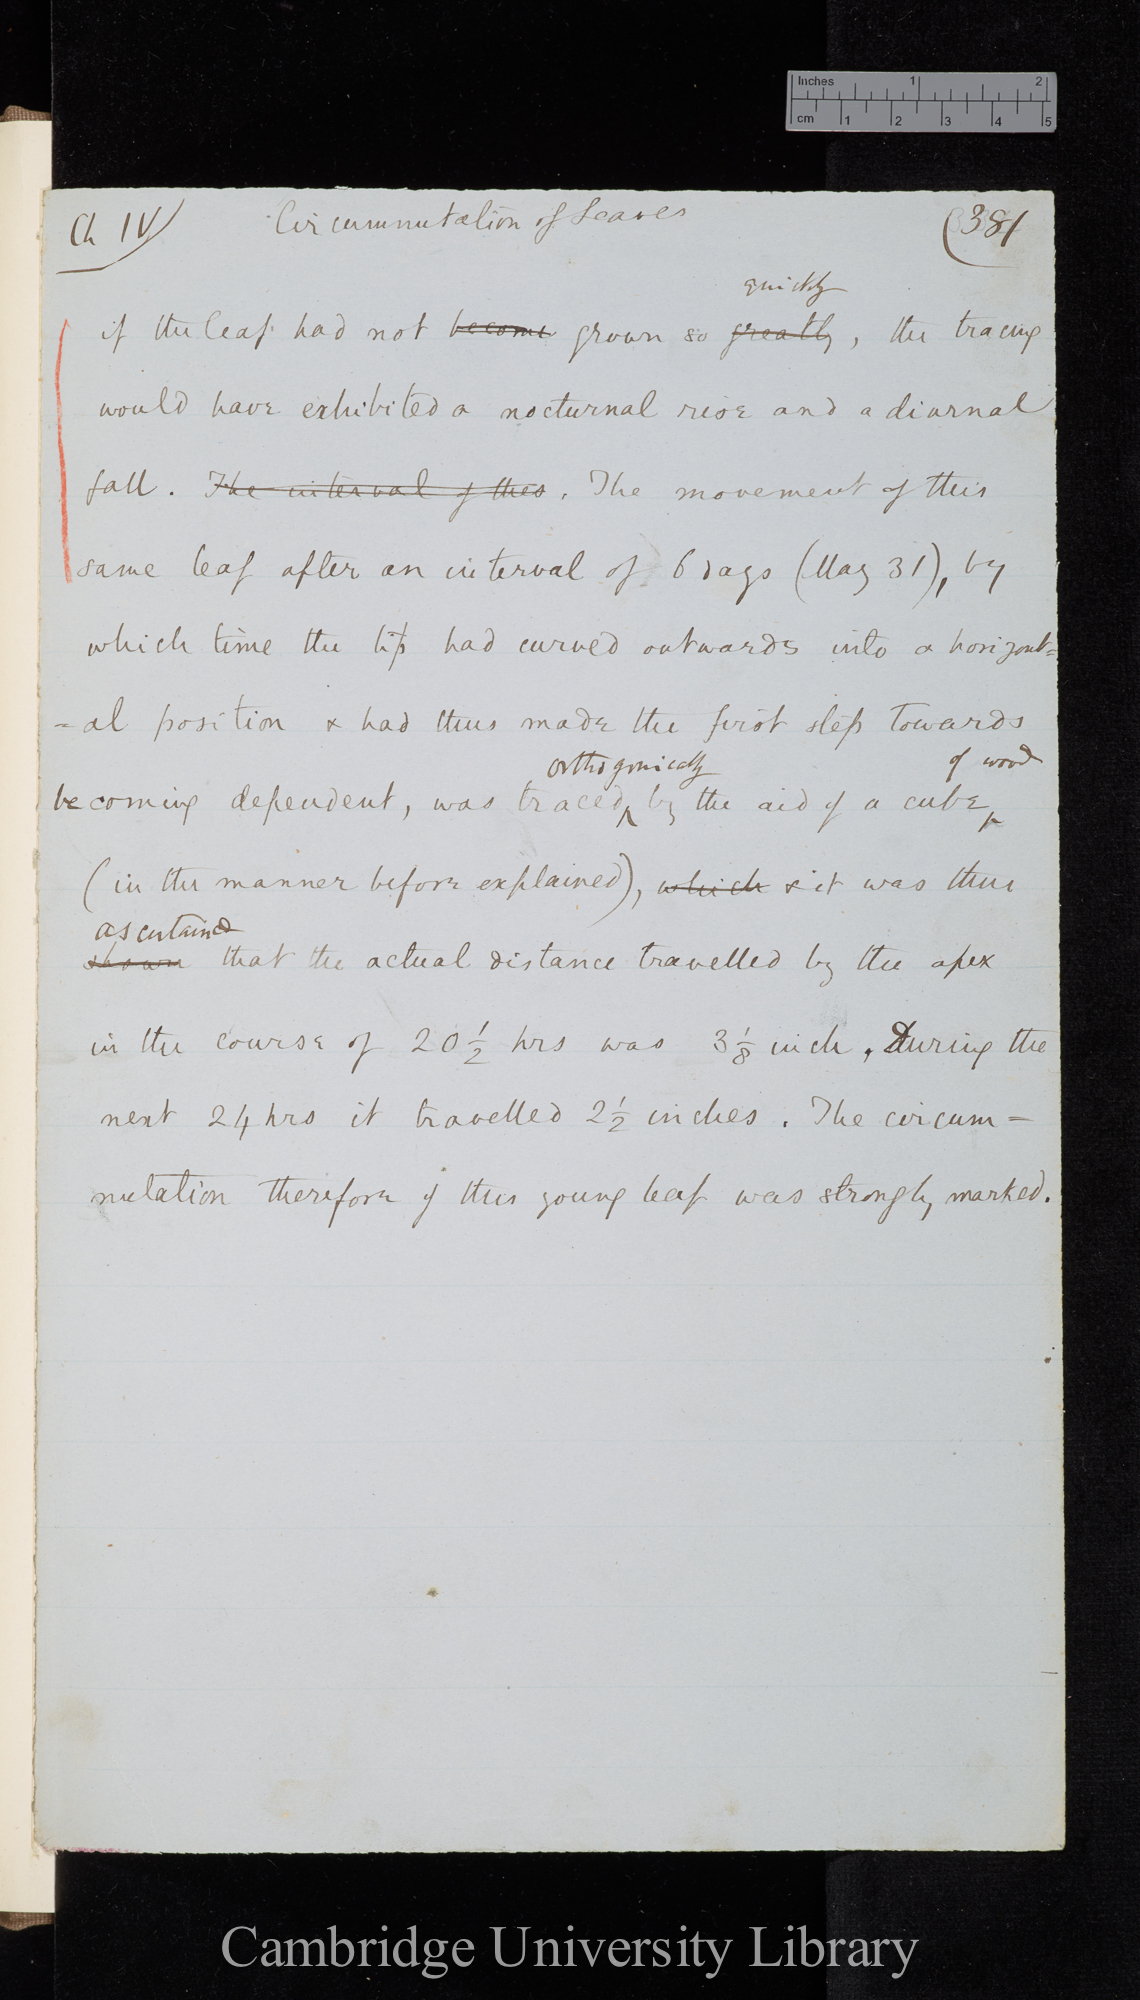 Inches 1 2
cm 1 2 3 4 5
Ch IV
Circumnutation of Leaves
(381
quickly
if the leaf had not become grown so greatly, the tracing
would have exhibited a nocturnal rise and a diurnal
fall. The interval of this. The movement of this
same leaf after an interval of 6 days (May 31), by
which time the tip had curved outwards into a horizont=
=al position & had thus made the first step towards
orthogonically of wood
becoming dependent, was traced by the aid of a cube
(in the manner before explained), which & it was thus
ascertained
shown that the actual distance travelled by the apex
in the course of 20 1/2 hrs was 3 1/8 inch. During the
next 24 hrs it travelled 2 1/2 inches. The circum=
nutation therefore of this young leaf was strongly marked.
Cambridge University Library